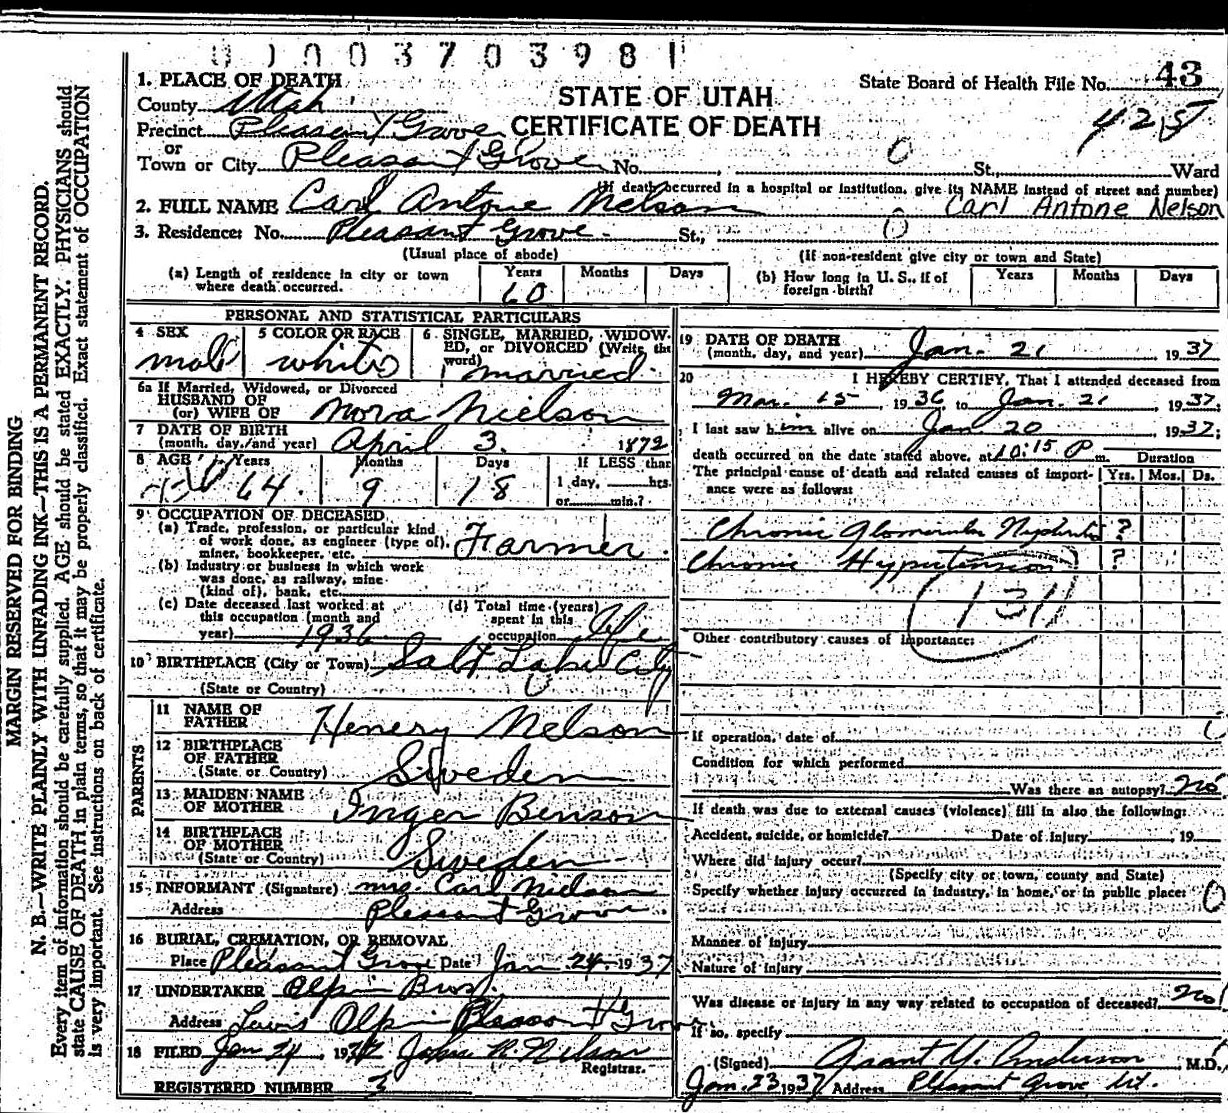 0 1 0 0 3 7 0 3 9 8 1
1. PLACE OF DEATH
State Board of Health File No. 43
County Utah
STATE OF UTAH
425
Precinct Pleasant Grove
CERTIFICATE OF DEATH
or
Town or City Pleasant Grove No. 0 St., Ward
(If death occurred in a hospital or institution, give its NAME instead of street and number)
2. FULL NAME Carl Antone Nelson Carl Antone Nelson
3. Residence: No. Pleasant Grove. St., 0
(Usual place of abode) (If non-resident give city or town and State)
(a) Length of residence in city or town where death occurred. Years 60 Months Days
(b) How long in U. S., if of foreign birth? Years Months Days
PERSONAL AND STATISTICAL PARTICULARS
4 SEX male
5 COLOR OR RACE white
6 SINGLE, MARRIED, WIDOWED, or DIVORCED (Write the word) married
6a If Married, Widowed, or Divorced
HUSBAND OF
(or) WIFE OF Nora Nielson
7 DATE OF BIRTH
(month, day, and year) April 3. 1872
8 AGE Years 64 Months 9 Days 18 If LESS than
1 day, hrs.
or min.?
9 OCCUPATION OF DECEASED
(a) Trade, profession, or particular kind
of work done, as engineer (type of), Farmer.
miner, bookkeeper, etc.
(b) Industry or business in which work
was done, as railway, mine
(kind of), bank, etc.
(c) Date deceased last worked at
this occupation (month and
year) 1936
(d) Total time (years)
spent in this
occupation Life
10 BIRTHPLACE (City or Town) Salt Lake City
(State or Country)
PARENTS
11 NAME OF
FATHER Henery Nelson
12 BIRTHPLACE
OF FATHER
(State or Country) Sweden
13 MAIDEN NAME
OF MOTHER Inger Benson
14 BIRTHPLACE
OF MOTHER
(State or Country) Sweden
15 INFORMANT (Signature) Mrs. Carl Nielson
Address Pleasant Grove.
16 BURIAL, CREMATION, OR REMOVAL
Place Pleasant Grove Date Jan 24 1937
17 UNDERTAKER Olpin Bros.
Address Lewis Olpin Pleasant Grove
18 FILED Jan 24, 1937 John R. Nilson
Registrar.
REGISTERED NUMBER 3
19 DATE OF DEATH
(month, day, and year) Jan. 21 1937
20 I HEREBY CERTIFY, That I attended deceased from
Mar. 15, 1936, to Jan. 21, 1937.
I last saw him alive on Jan 20 1937;
death occurred on the date stated above, at 10:15 P m. Duration
The principal cause of death and related causes of importance were as follows: Yrs. Mos. Ds.
Chronic Glomerular Nephritis ?
Chronic Hypertension ?
131
Other contributory causes of importance:
If operation, date of
Condition for which performed
Was there an autopsy? No
If death was due to external causes (violence) fill in also the following:
Accident, suicide, or homicide? Date of injury 19
Where did injury occur?
(Specify city or town, county and State)
Specify whether injury occurred in industry, in home, or in public place: 0
Manner of injury
Nature of injury
Was disease or injury in any way related to occupation of deceased? No
If so, specify
(Signed) Grant Y. Anderson M.D.
Jan. 23 1937 Address Pleasant Grove Ut.
MARGIN RESERVED FOR BINDING
N. B.—WRITE PLAINLY WITH UNFADING INK—THIS IS A PERMANENT RECORD.
Every item of information should be carefully supplied. AGE should be stated EXACTLY. PHYSICIANS should
state CAUSE OF DEATH in plain terms, so that it may be properly classified. Exact statement of OCCUPATION
is very important. See instructions on back of certificate.